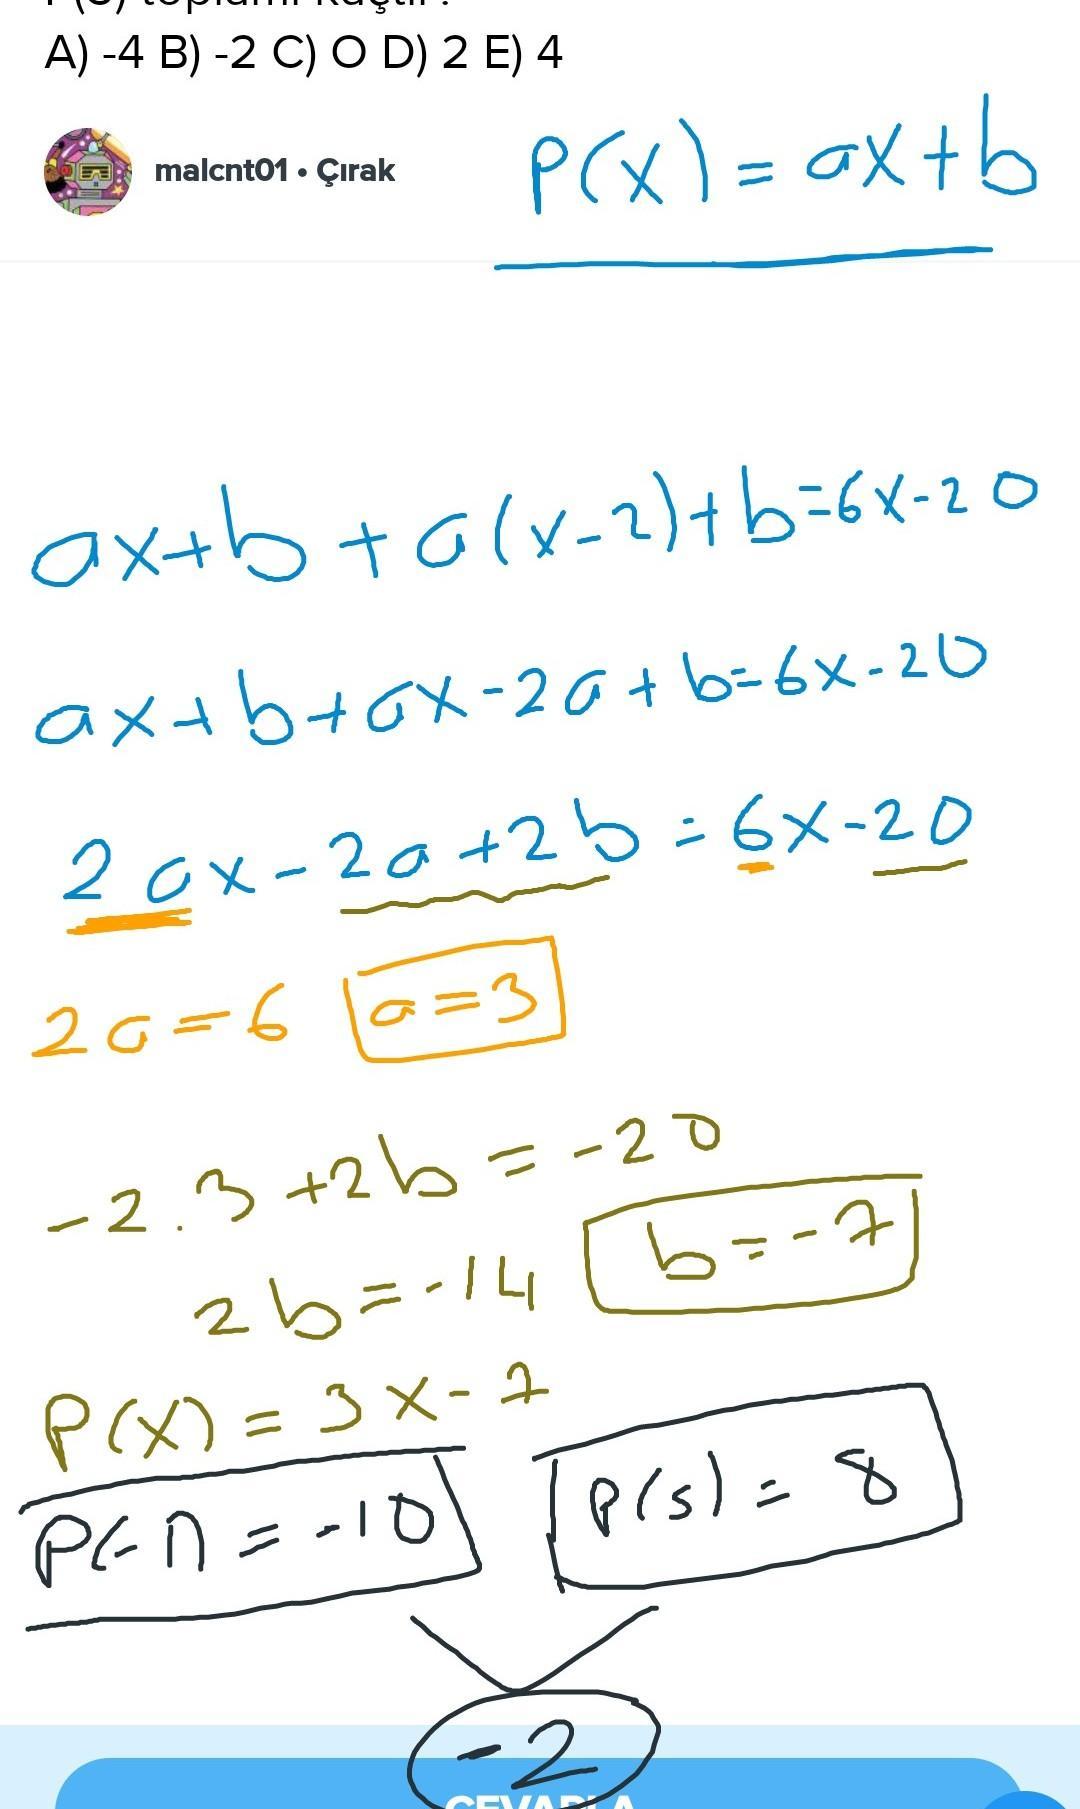 A) -4 B) -2 C) O D) 2 E) 4
malcnt01 • Çırak
P(x) = ax+b
ax+b+a(x-2)+b=6x-20
ax+b+ax-2a+b=6x-20
2ax-2a+2b=6x-20
2a=6 a=3
-2.3+2b=-20
2b=-14 b=-7
P(x)=3x-7
P(-1)=-10 P(5)=8
-2
CEVAPLA